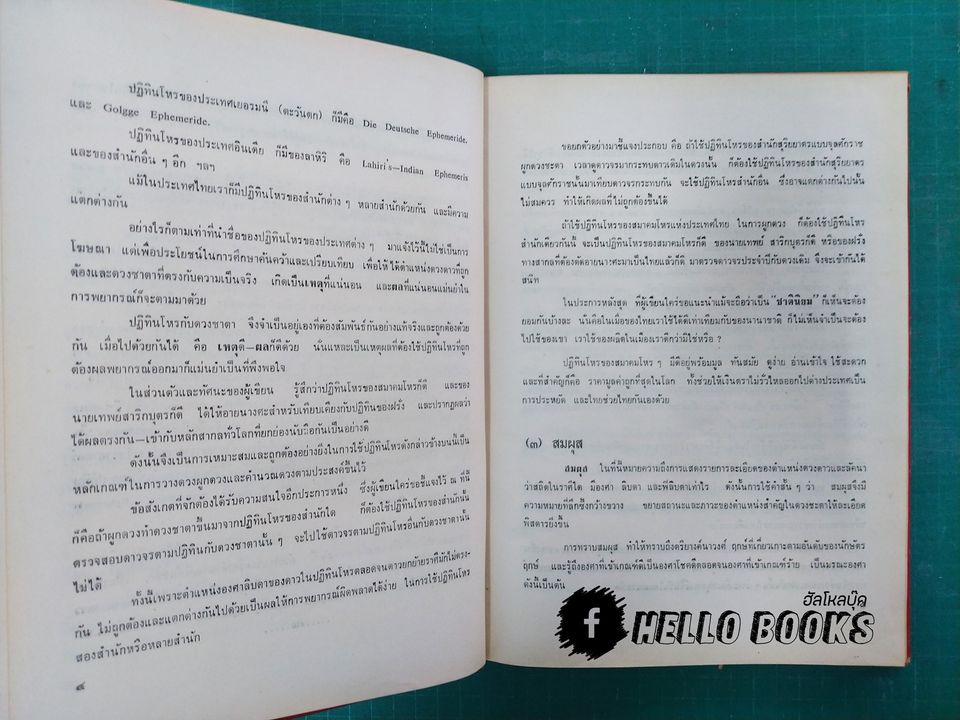 ปฏิทินโหรของประเทศเยอรมนี (ตะวันตก) ก็มีคือ Die Deutsche Ephemeride.
และ Golgge Ephemeride.
ปฏิทินโหรของประเทศอินเดีย ก็มีของลาหิริ คือ Lahiri's—Indian Ephemeris
และของสำนักอื่น ๆ อีก ฯลฯ
แม้ในประเทศไทยเราก็มีปฏิทินโหรของสำนักต่าง ๆ หลายสำนักด้วยกัน และมีความ
แตกต่างกัน
อย่างไรก็ตามเท่าที่นำชื่อของปฏิทินโหรของประเทศต่าง ๆ มาแจ้งไว้นี้ไม่ใช่เป็นการ
โฆษณา แต่เพื่อประโยชน์ในการศึกษาค้นคว้าและเปรียบเทียบ เพื่อให้ได้ตำแหน่งดวงดาวที่ถูก
ต้องและดวงชาตาที่ตรงกับความเป็นจริง เกิดเป็นเหตุที่แน่นอน และผลที่แน่นอนแม่นยำใน
การพยากรณ์ก็จะตามมาด้วย
ปฏิทินโหรกับดวงชาตา จึงจำเป็นอยู่เองที่ต้องสัมพันธ์กันอย่างแท้จริงและถูกต้องด้วย
กัน เมื่อไปด้วยกันได้ คือ เหตุดี—ผลก็ดีด้วย นั่นแหละเป็นเหตุผลที่ต้องใช้ปฏิทินโหรที่ถูก
ต้องผลพยากรณ์ออกมาก็แม่นยำเป็นที่พึงพอใจ
ในส่วนตัวและทัศนะของผู้เขียน รู้สึกว่าปฏิทินโหรของสมาคมโหรก็ดี และของ
นายเทพย์สาริกบุตรก็ดี ได้ให้อายนางศะสำหรับเทียบเคียงกับปฏิทินของฝรั่ง และปรากฏผลว่า
ได้ผลตรงกัน—เข้ากับหลักสากลทั่วโลกที่ยกย่องนับถือกันเป็นอย่างดี
ดังนั้นจึงเป็นการเหมาะสมและถูกต้องอย่างยิ่งในการใช้ปฏิทินโหรดังกล่าวข้างบนนี้เป็น
หลักเกณฑ์ในการวางดวงผูกดวงและคำนวณดวงตามประสงค์ขึ้นไว้
ข้อสังเกตที่จักต้องได้รับความสนใจอีกประการหนึ่ง ซึ่งผู้เขียนใคร่ขอชี้แจงไว้ ณ ที่นี้
ก็คือถ้าผูกดวงทำดวงชาตาขึ้นมาจากปฏิทินโหรของสำนักใด ก็ต้องใช้ปฏิทินโหรของสำนักนั้น
ตรวจสอบดาวจรตามปฏิทินกับดวงชาตานั้น ๆ จะไปใช้ดาวจรตามปฏิทินโหรอื่นกับดวงชาตานั้น
ไม่ได้
ทั้งนี้เพราะตำแหน่งองศาลิบดาของดาวในปฏิทินโหรตลอดจนดาวยกย้ายราศีมักไม่ตรง-
กัน ไม่ถูกต้องและแตกต่างกันไปด้วยเป็นผลให้การพยากรณ์ผิดพลาดได้ง่าย ในการใช้ปฏิทินโหร
สองสำนักหรือหลายสำนัก
๔
ขอยกตัวอย่างมาชี้แจงประกอบ คือ ถ้าใช้ปฏิทินโหรของสำนักสุริยยาตรแบบจุลศักราช
ผูกดวงชะตา เวลาดูดาวจรมากระทบดาวเดิมในดวงนั้น ก็ต้องใช้ปฏิทินโหรของสำนักสุริยยาตร
แบบจุลศักราชนั้นมาเทียบดาวจรกระทบกัน จะใช้ปฏิทินโหรสำนักอื่น ซึ่งอาจแตกต่างกันไปนั้น
ไม่สมควร ทำให้เกิดผลที่ไม่ถูกต้องขึ้นได้
ถ้าใช้ปฏิทินโหรของสมาคมโหรแห่งประเทศไทย ในการผูกดวง ก็ต้องใช้ปฏิทินโหร
สำนักเดียวกันนี้ จะเป็นปฏิทินโหรของสมาคมโหรก็ดี ของนายเทพย์ สาริกบุตรก็ดี หรือของฝรั่ง
ทางสากลที่ต้องตัดอายนางศะมาเป็นไทยแล้วก็ดี มาตรวจดาวจรประจำปีกับดวงเดิม จึงจะเข้ากันได้
สนิท
ในประการหลังสุด ที่ผู้เขียนใคร่ขอแนะนำแม้จะถือว่าเป็น “ชาตินิยม” ก็เห็นจะต้อง
ยอมกันบ้างละ นั่นคือในเมื่อของไทยเราใช้ได้ดีเท่าเทียมกับของนานาชาติ ก็ไม่เห็นจำเป็นจะต้อง
ไปใช้ของเขา เราใช้ของผลิตในเมืองเราดีกว่ามิใช่หรือ ?
ปฏิทินโหรของสมาคมโหร ๆ มีดีอยู่พร้อมมูล ทันสมัย ดูง่าย อ่านเข้าใจ ใช้สะดวก
และที่สำคัญก็คือ ราคามูลค่าถูกที่สุดในโลก ทั้งช่วยให้เงินตราไม่รั่วไหลออกไปต่างประเทศเป็น
การประหยัด และไทยช่วยไทยกันเองด้วย
(๓) สมผุส
สมผุส ในที่นี้หมายความถึงการแสดงรายการละเอียดของตำแหน่งดวงดาวและลัคนา
ว่าสถิตในราศีใด มีองศา ลิบดา และพิลิบดาเท่าไร ดังนั้นการใช้คำสั้น ๆ ว่า สมผุสจึงมี
ความหมายที่ลึกซึ้งกว้างขวาง ขยายสถานะและภาวะของตำแหน่งสำคัญในดวงชะตาให้ละเอียด
พิสดารยิ่งขึ้น
การทราบสมผุส ทำให้ทราบถึงตรียางค์นวางค์ ฤกษ์ที่เกี่ยวเกาะตามอันดับของนักษัตร
ฤกษ์ และรู้ถึงองศาที่เข้าเกณฑ์ดีเป็นองศาโชคดีตลอดจนองศาที่เข้าเกณฑ์ร้าย เป็นมรณะองศา
ดังนี้เป็นต้น
ฮัลโหลบุ๊ค
f HELLO BOOKS